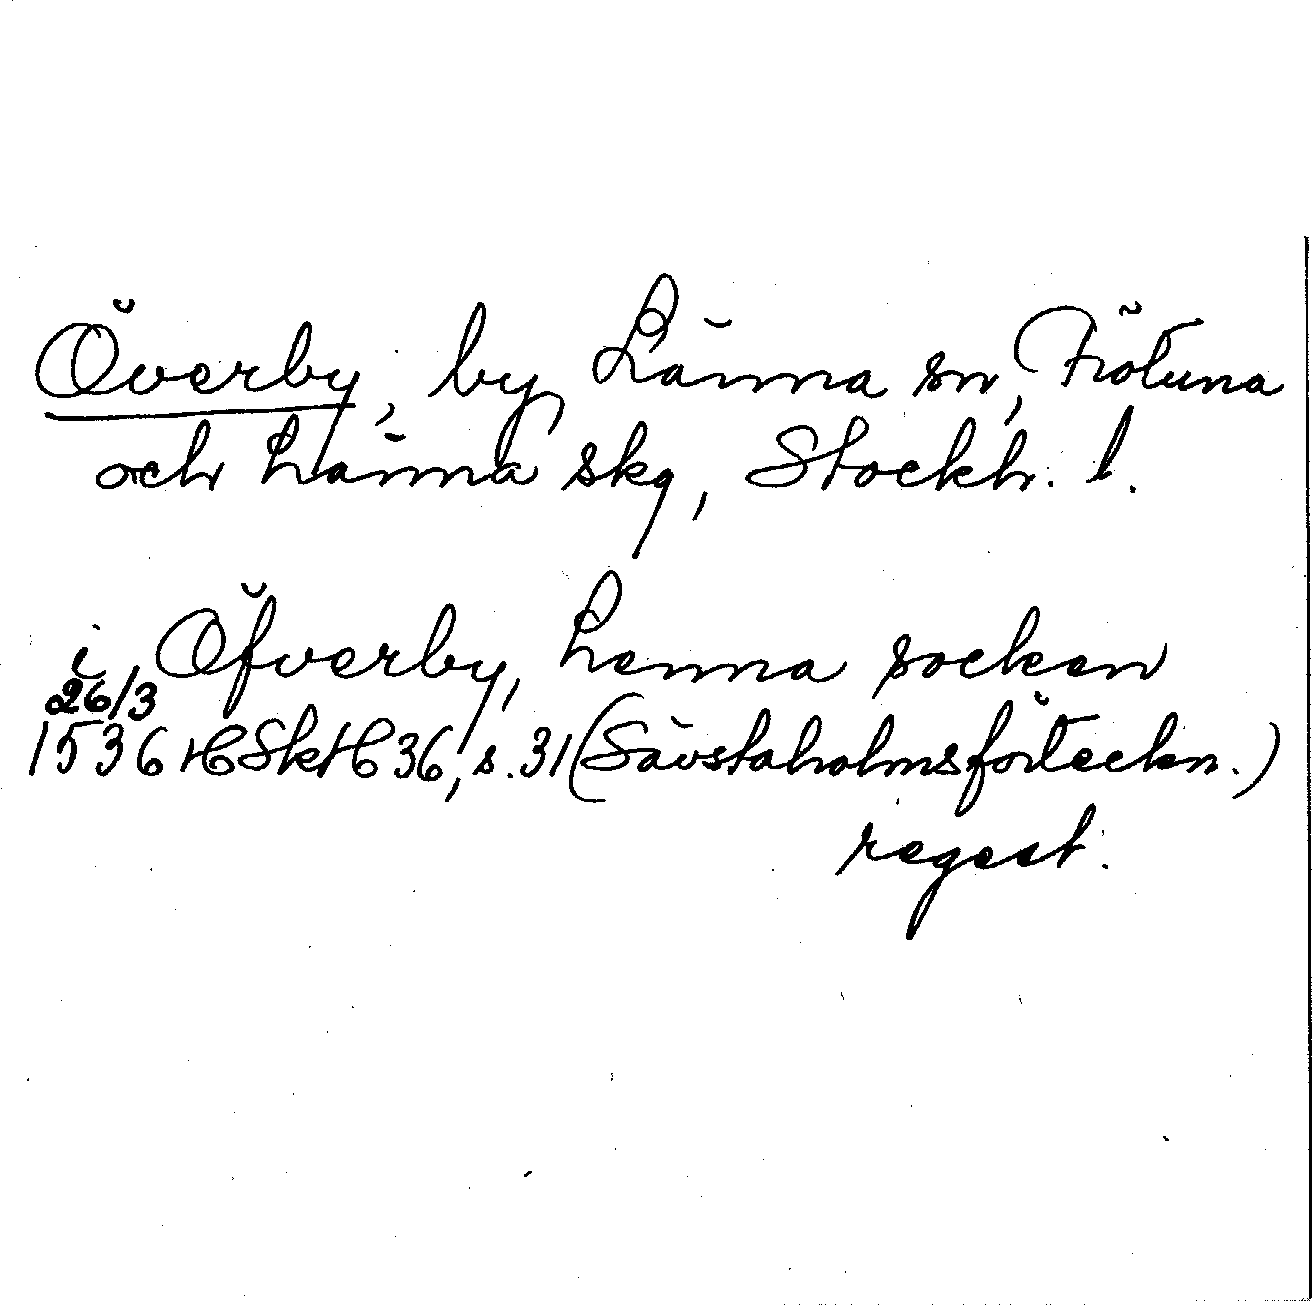 Överby, by, Länna sn, Frötuna
och Länna skg, Stockh. l.
i Öfverby, Lenna socken
26/3
1536 HSkH 36, s. 31 (Sävstaholmsförteckn.)
regest.